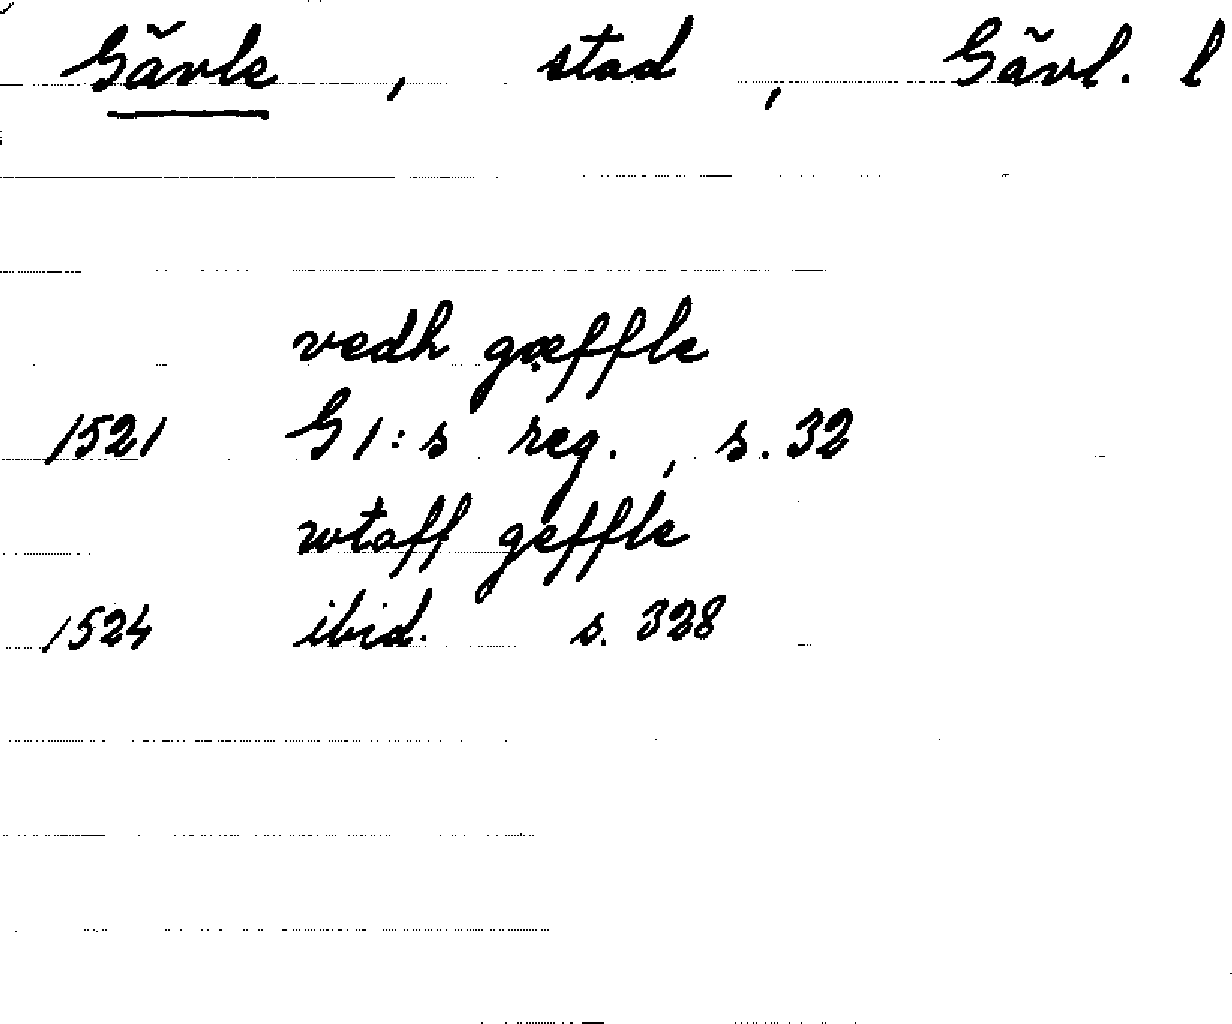 Gävle, stad, Gävl. l
vedh gæffle
1521 G I:s reg., s. 32
wtaff geffle
1524 ibid. s. 328